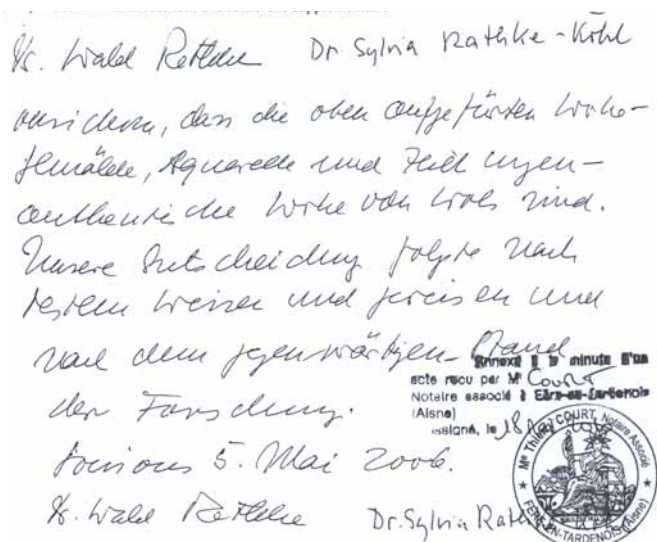 Dr. Ewald Rathke Dr. Sylvia Rathke-Köhl
versichern, dass die oben aufgeführten Werke-
Gemälde, Aquarelle und Zeichnungen-
authentische Werke von Wols sind.
Unsere Entscheidung folgte nach
bestem Wissen und Gewissen und
nach dem gegenwärtigen Stand
der Forschung.
5. Mai 2006.
Dr. Ewald Rathke Dr. Sylvia
Annexé à la minute d'un
acte reçu par Me COURT
Notaire associé à Fère-en-Tardenois
(Aisne)
soussigné, le 18
Me Thierry COURT, Notaire Associé
FERE-EN-TARDENOIS (Aisne)